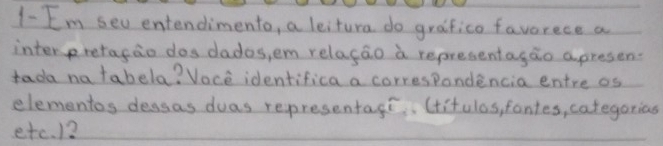 1-Em seu entendimento, a leitura do gráfico favorece a
interpretação dos dados, em relação à representação apresen-
tada na tabela? Você identifica a correspondência entre os
elementos dessas duas (títulos, fontes, categorias
etc.)?